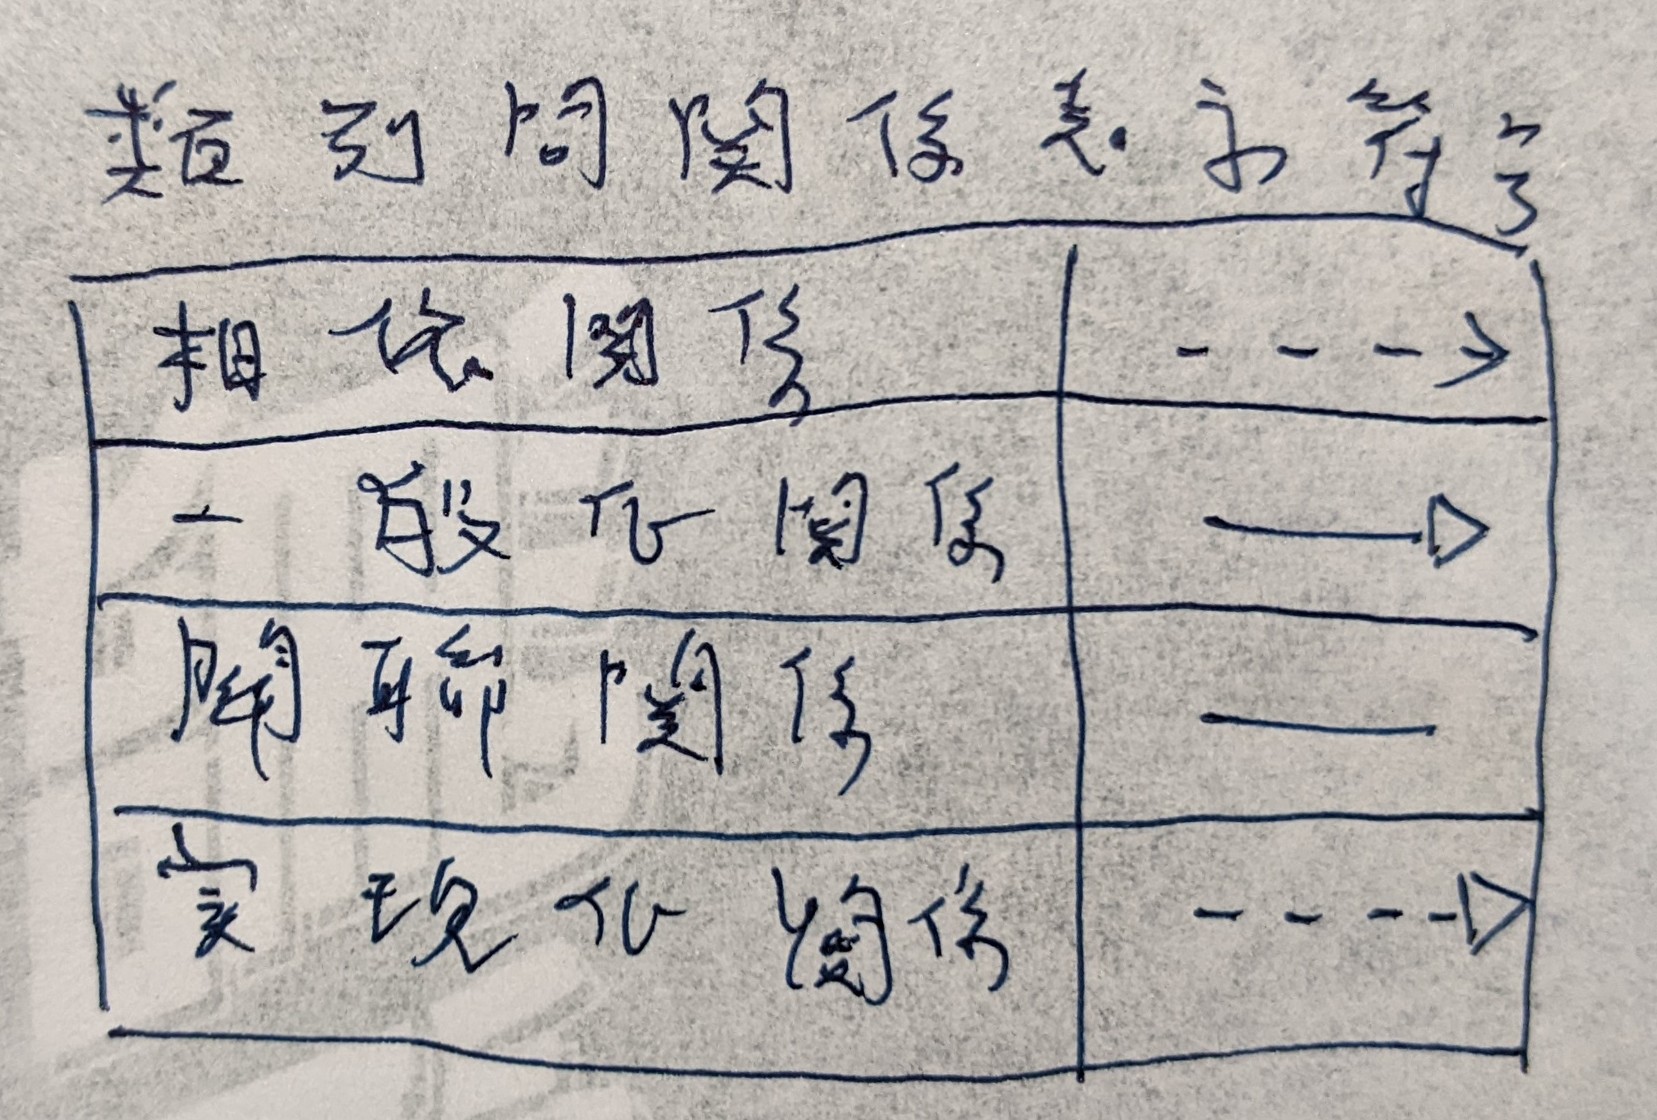 類別間関係表示符号
相依関係
一般化関係
関聯関係
実現化関係